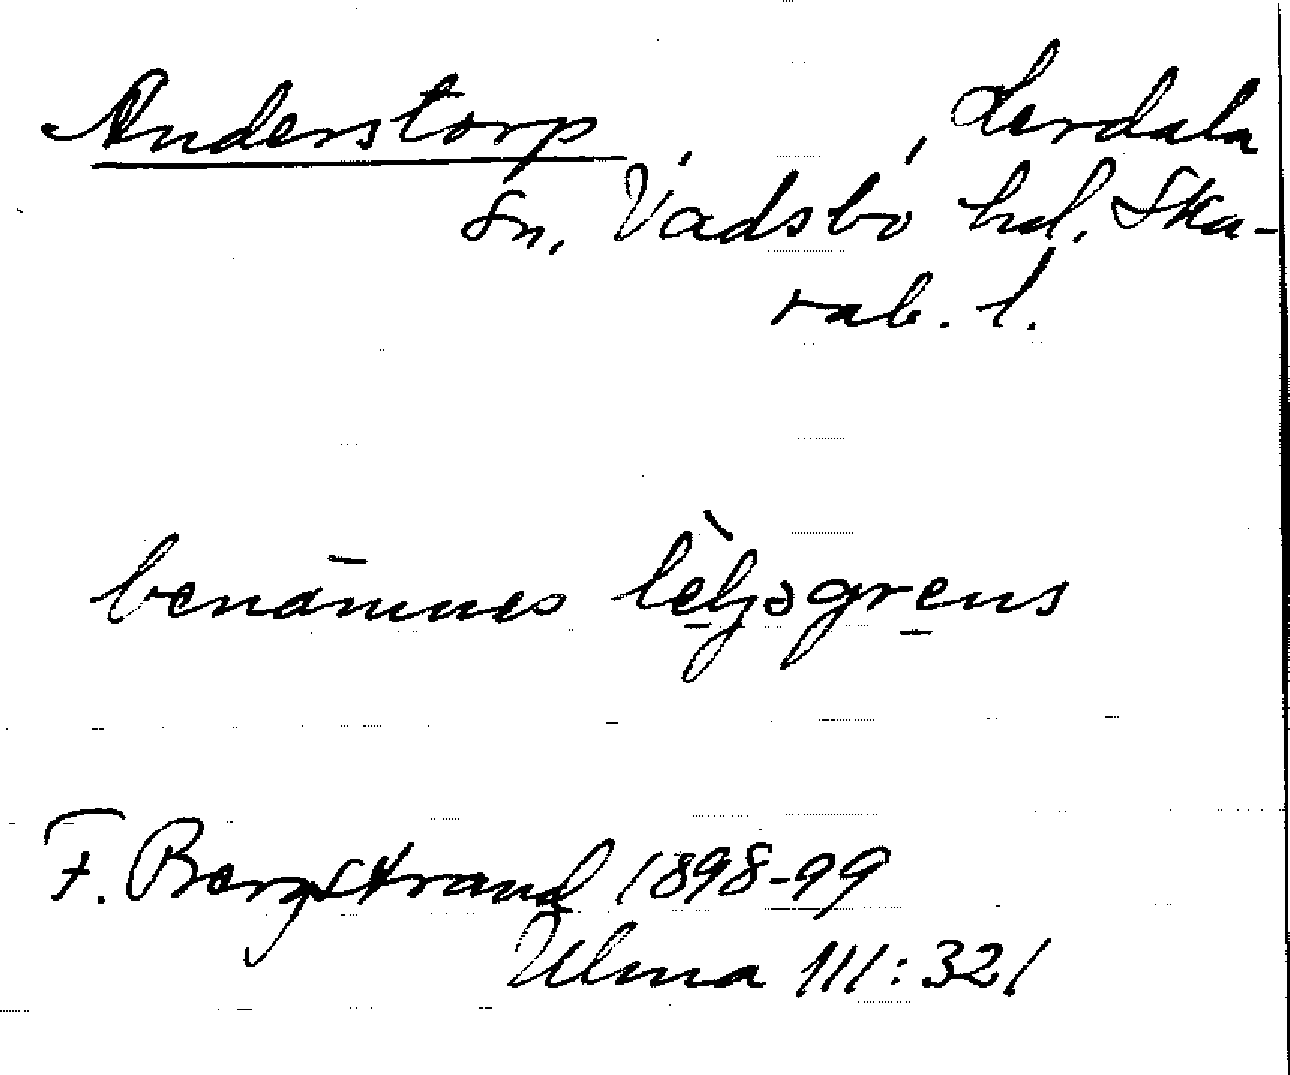 Anderstorp , , Lerdala
sn, Vadsbo hd, Ska-
rab. l.
benämnes
F. Bergstrand 1898-99
Ulma 111:321